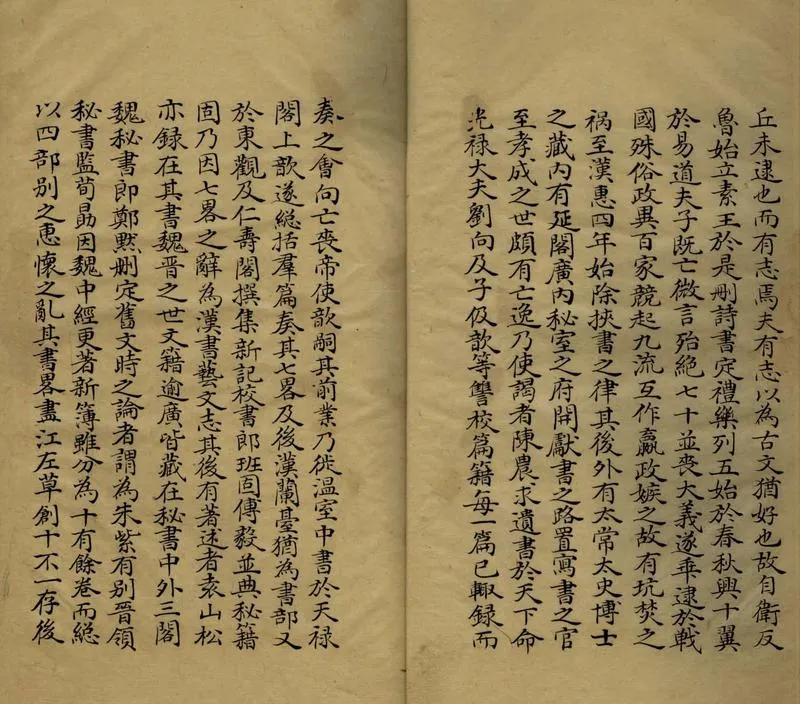 丘未逮也而有志焉夫有志以為古文猶好也故自衛反
魯始立素王於是刪詩書定禮樂列五始於春秋興十翼
於易道夫子既亡微言殆絕七十並喪大義遂乖逮於戰
國殊俗政異百家競起九流互作嬴政嫉之故有坑焚之
禍至漢惠四年始除挾書之律其後外有太常太史博士
之藏內有延閣廣內秘室之府開獻書之路置寫書之官
至孝成之世頗有亡逸乃使謁者陳農求遺書於天下命
光禄大夫劉向及子伋歆等讐校篇籍每一篇已輙録而
奏之會向亡喪帝使歆嗣其前業乃徙溫室中書於天禄
閣上歆遂緫括羣篇奏其七畧及後漢蘭臺猶為書部又
於東觀及仁壽閣撰集新記校書郎班固傅毅並典秘籍
固乃因七畧之辭為漢書藝文志其後有著述者袁山松
亦録在其書魏晉之世文籍逾廣皆藏在秘書中外三閣
魏秘書郎鄭黙刪定舊文時之論者謂為朱紫有别晉領
秘書監荀勗因魏中經更著新簿雖分為十有餘卷而緫
以四部别之惠懷之亂其書畧盡江左草創十不一存後